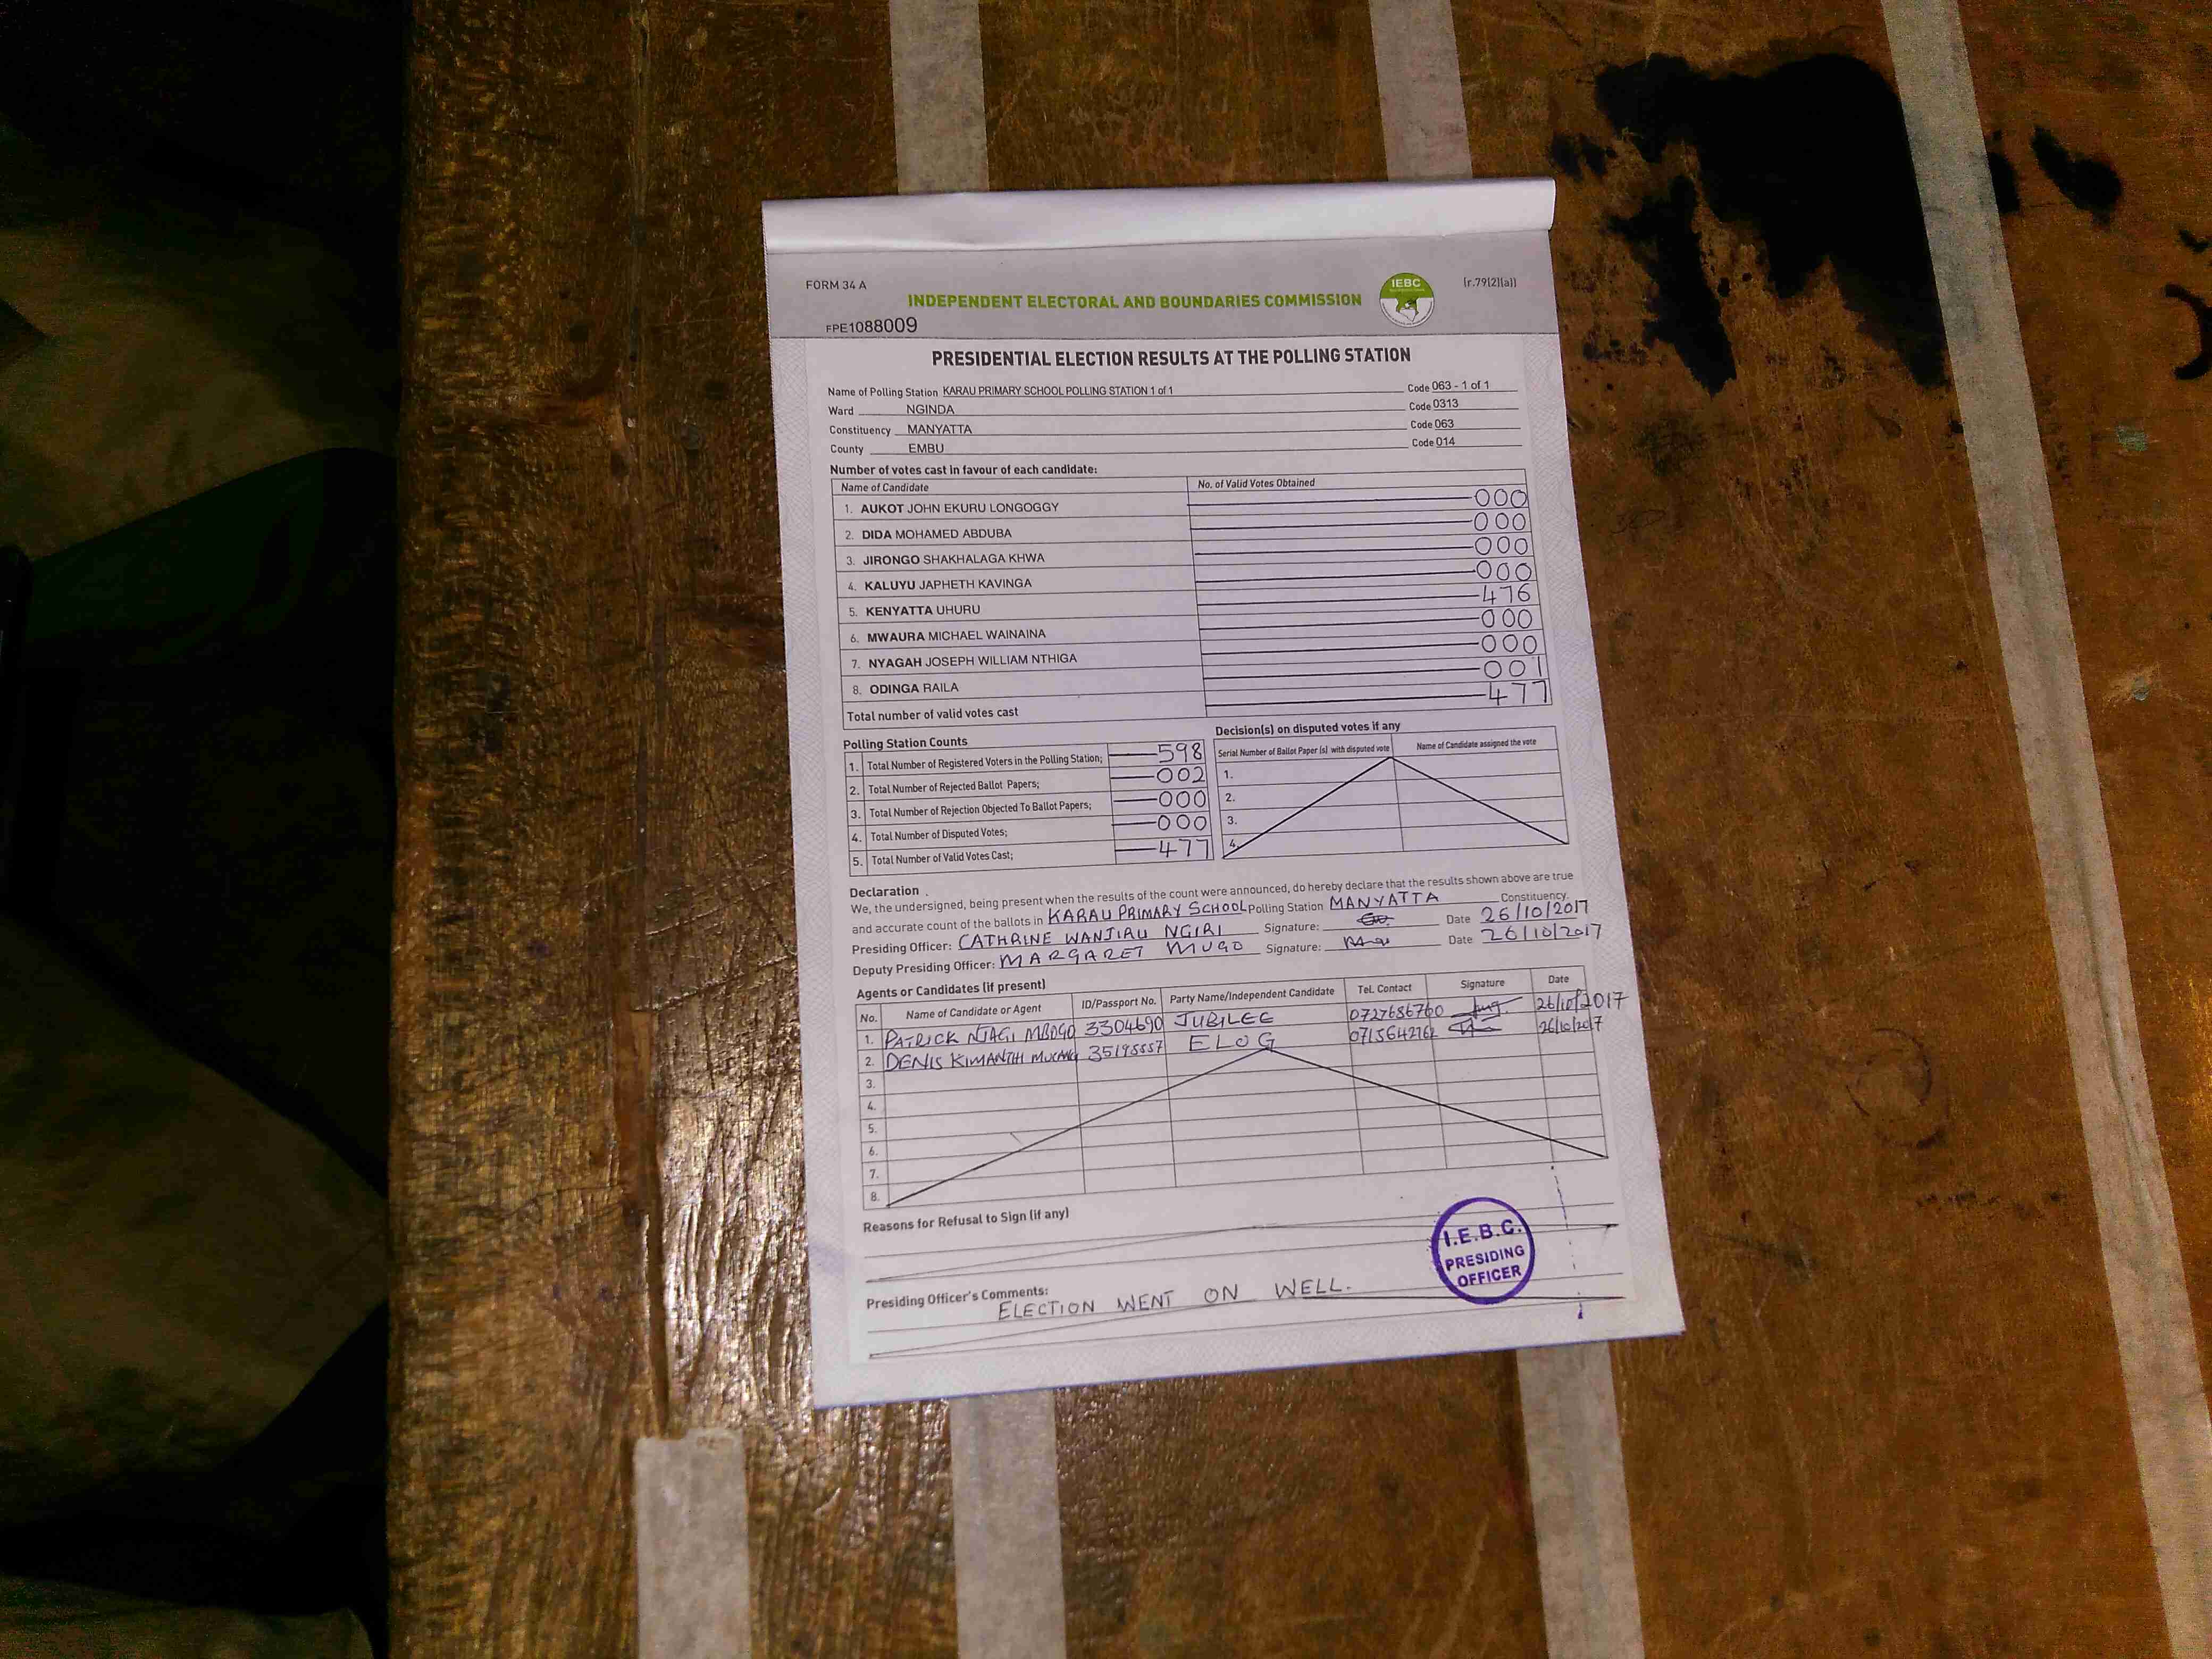 FORM 34 A
INDEPENDENT ELECTORAL AND BOUNDARIES COMMISSION
IEBC
(r.79(2)(a))
FPE1088009
PRESIDENTIAL ELECTION RESULTS AT THE POLLING STATION
Name of Polling Station KARAU PRIMARY SCHOOL POLLING STATION 1 of 1 Code 063 - 1 of 1
Ward NGINDA Code 0313
Constituency MANYATTA Code 063
County EMBU Code 014
Number of votes cast in favour of each candidate:
Name of Candidate No. of Valid Votes Obtained
1. AUKOT JOHN EKURU LONGOGGY 000
2. DIDA MOHAMED ABDUBA 000
3. JIRONGO SHAKHALAGA KHWA 000
4. KALUYU JAPHETH KAVINGA 000
5. KENYATTA UHURU 476
6. MWAURA MICHAEL WAINAINA 000
7. NYAGAH JOSEPH WILLIAM NTHIGA 000
8. ODINGA RAILA 001
Total number of valid votes cast 477
Polling Station Counts
1. Total Number of Registered Voters in the Polling Station; 598
2. Total Number of Rejected Ballot Papers; 002
3. Total Number of Rejection Objected To Ballot Papers; 000
4. Total Number of Disputed Votes; 000
5. Total Number of Valid Votes Cast; 477
Decision(s) on disputed votes if any
Serial Number of Ballot Paper (s) with disputed vote Name of Candidate assigned the vote
1.
2.
3.
4.
Declaration
We, the undersigned, being present when the results of the count were announced, do hereby declare that the results shown above are true
and accurate count of the ballots in KARAU PRIMARY SCHOOL Polling Station MANYATTA Constituency.
Presiding Officer: CATHRINE WANJIRU NGIRI Signature: Date 26/10/2017
Deputy Presiding Officer: MARGARET MUGO Signature: Date 26/10/2017
Agents or Candidates (if present)
No. Name of Candidate or Agent ID/Passport No. Party Name/Independent Candidate Tel. Contact Signature Date
1. PATRICK NJAGI MBOGO 3304690 JUBILEE 0727686760 26/10/2017
2. DENIS KIMANTHI 35198557 ELOG 0715642762 26/10/2017
3.
4.
5.
6.
7.
8.
Reasons for Refusal to Sign (if any)
I.E.B.C.
PRESIDING
OFFICER
Presiding Officer's Comments:
ELECTION WENT ON WELL.